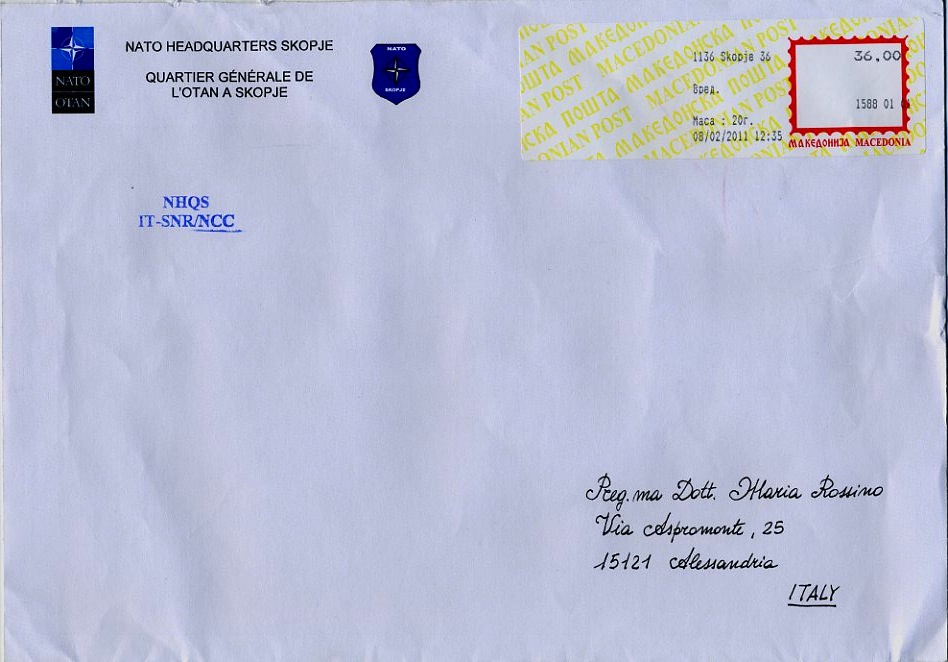 NATO
OTAN
NATO HEADQUARTERS SKOPJE
QUARTIER GÉNÉRALE DE
L'OTAN A SKOPJE
NATO
SKOPJE
1136 Skopje 36
Вред.
Маса : 20г.
08/02/2011 12:35
36,00
1588 01
МАКЕДОНИЈА MACEDONIA
MACEDONIAN POST
МАКЕДОНСКА ПОШТА
NHQS
IT-SNR/NCC
Preg.ma Dott. Maria Rossino
Via Aspromonte, 25
15121 Alessandria
ITALY